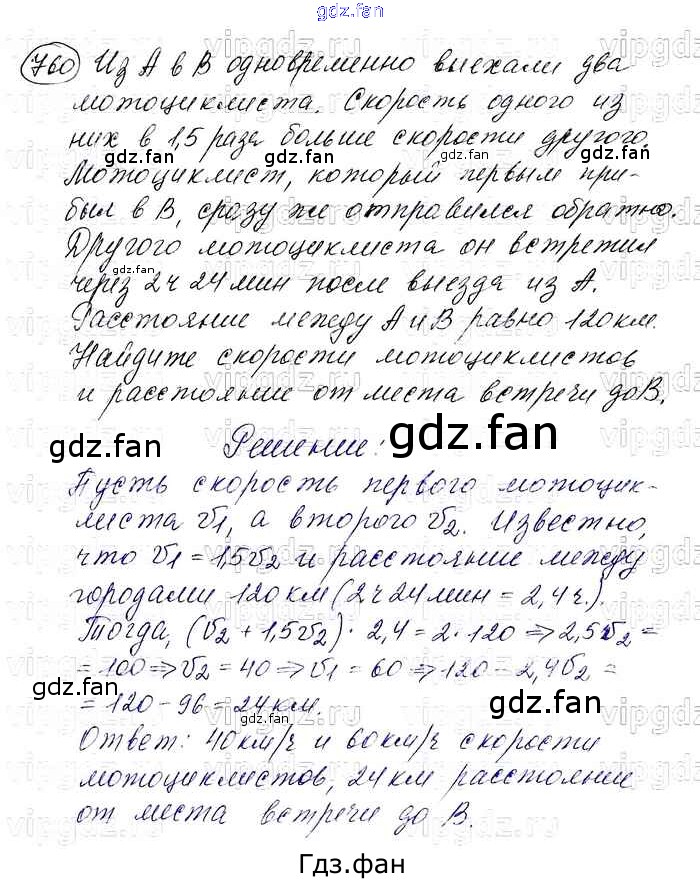 gdz.fan
760 Из А в В одновременно выехали два
мотоциклиста. Скорость одного из
них в 1,5 раза больше скорости другого.
gdz.fan gdz.fan
Мотоциклист, который первым при-
был в В, сразу же отправился обратно.
Другого мотоциклиста он встретил
gdz.fan
через 2ч 24мин после выезда из А.
Расстояние между А и В равно 120км.
Найдите скорости мотоциклистов
и расстояние от места встречи до В.
gdz.fan gdz.fan
Решение:
Пусть скорость первого мотоцик-
листа υ1, а второго υ2. Известно,
что υ1 = 1,5υ2 и расстояние между
городами 120км (2ч24мин = 2,4ч.).
Тогда, (υ2 + 1,5υ2)·2,4 = 2·120 ⇒ 2,5υ2 =
= 100 ⇒ υ2 = 40 ⇒ υ1 = 60 ⇒ 120 - 2,4υ2 =
gdz.fan gdz.fan
= 120 - 96 = 24км.
Ответ: 40км/ч и 60км/ч скорости
gdz.fan
мотоциклистов, 24км расстояние
от места встречи до В.
Гдз.фан